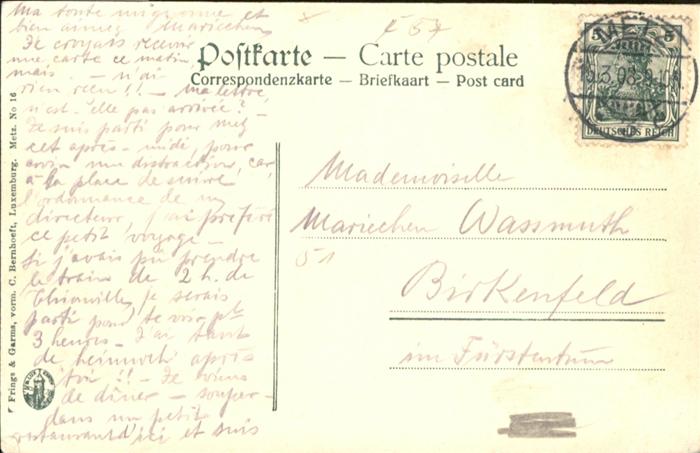 Ma toute mignonne et
bien aimée Mariechen
Je croyais recevoir
une carte ce matin
mais — n'ai
rien reçu !! — ma lettre
n'est-elle pas arrivée? —
Je suis parti pour Metz
cet après-midi, pour
avoir une distraction, car
à la place de suivre
l'ordonnance de
directeur, j'ai préféré
ce petit voyage —
Si j'avais pu prendre
le train de 2 h. de
Thionville, je serais
parti pour te voir
3 heures — J'ai tant
de heimweh après
toi !! — Je viens
de dîner — souper —
dans un petit
restaurant d'ici et suis
Postkarte — Carte postale
Correspondenzkarte — Briefkaart — Post card
57
5 5
METZ
DEUTSCHES REICH
Mademoiselle
Mariechen Wassmuth
51
Birkenfeld
im Fürstentum
Frings & Garms, vorm. C. Bernhoeft, Luxemburg. Metz. No 16